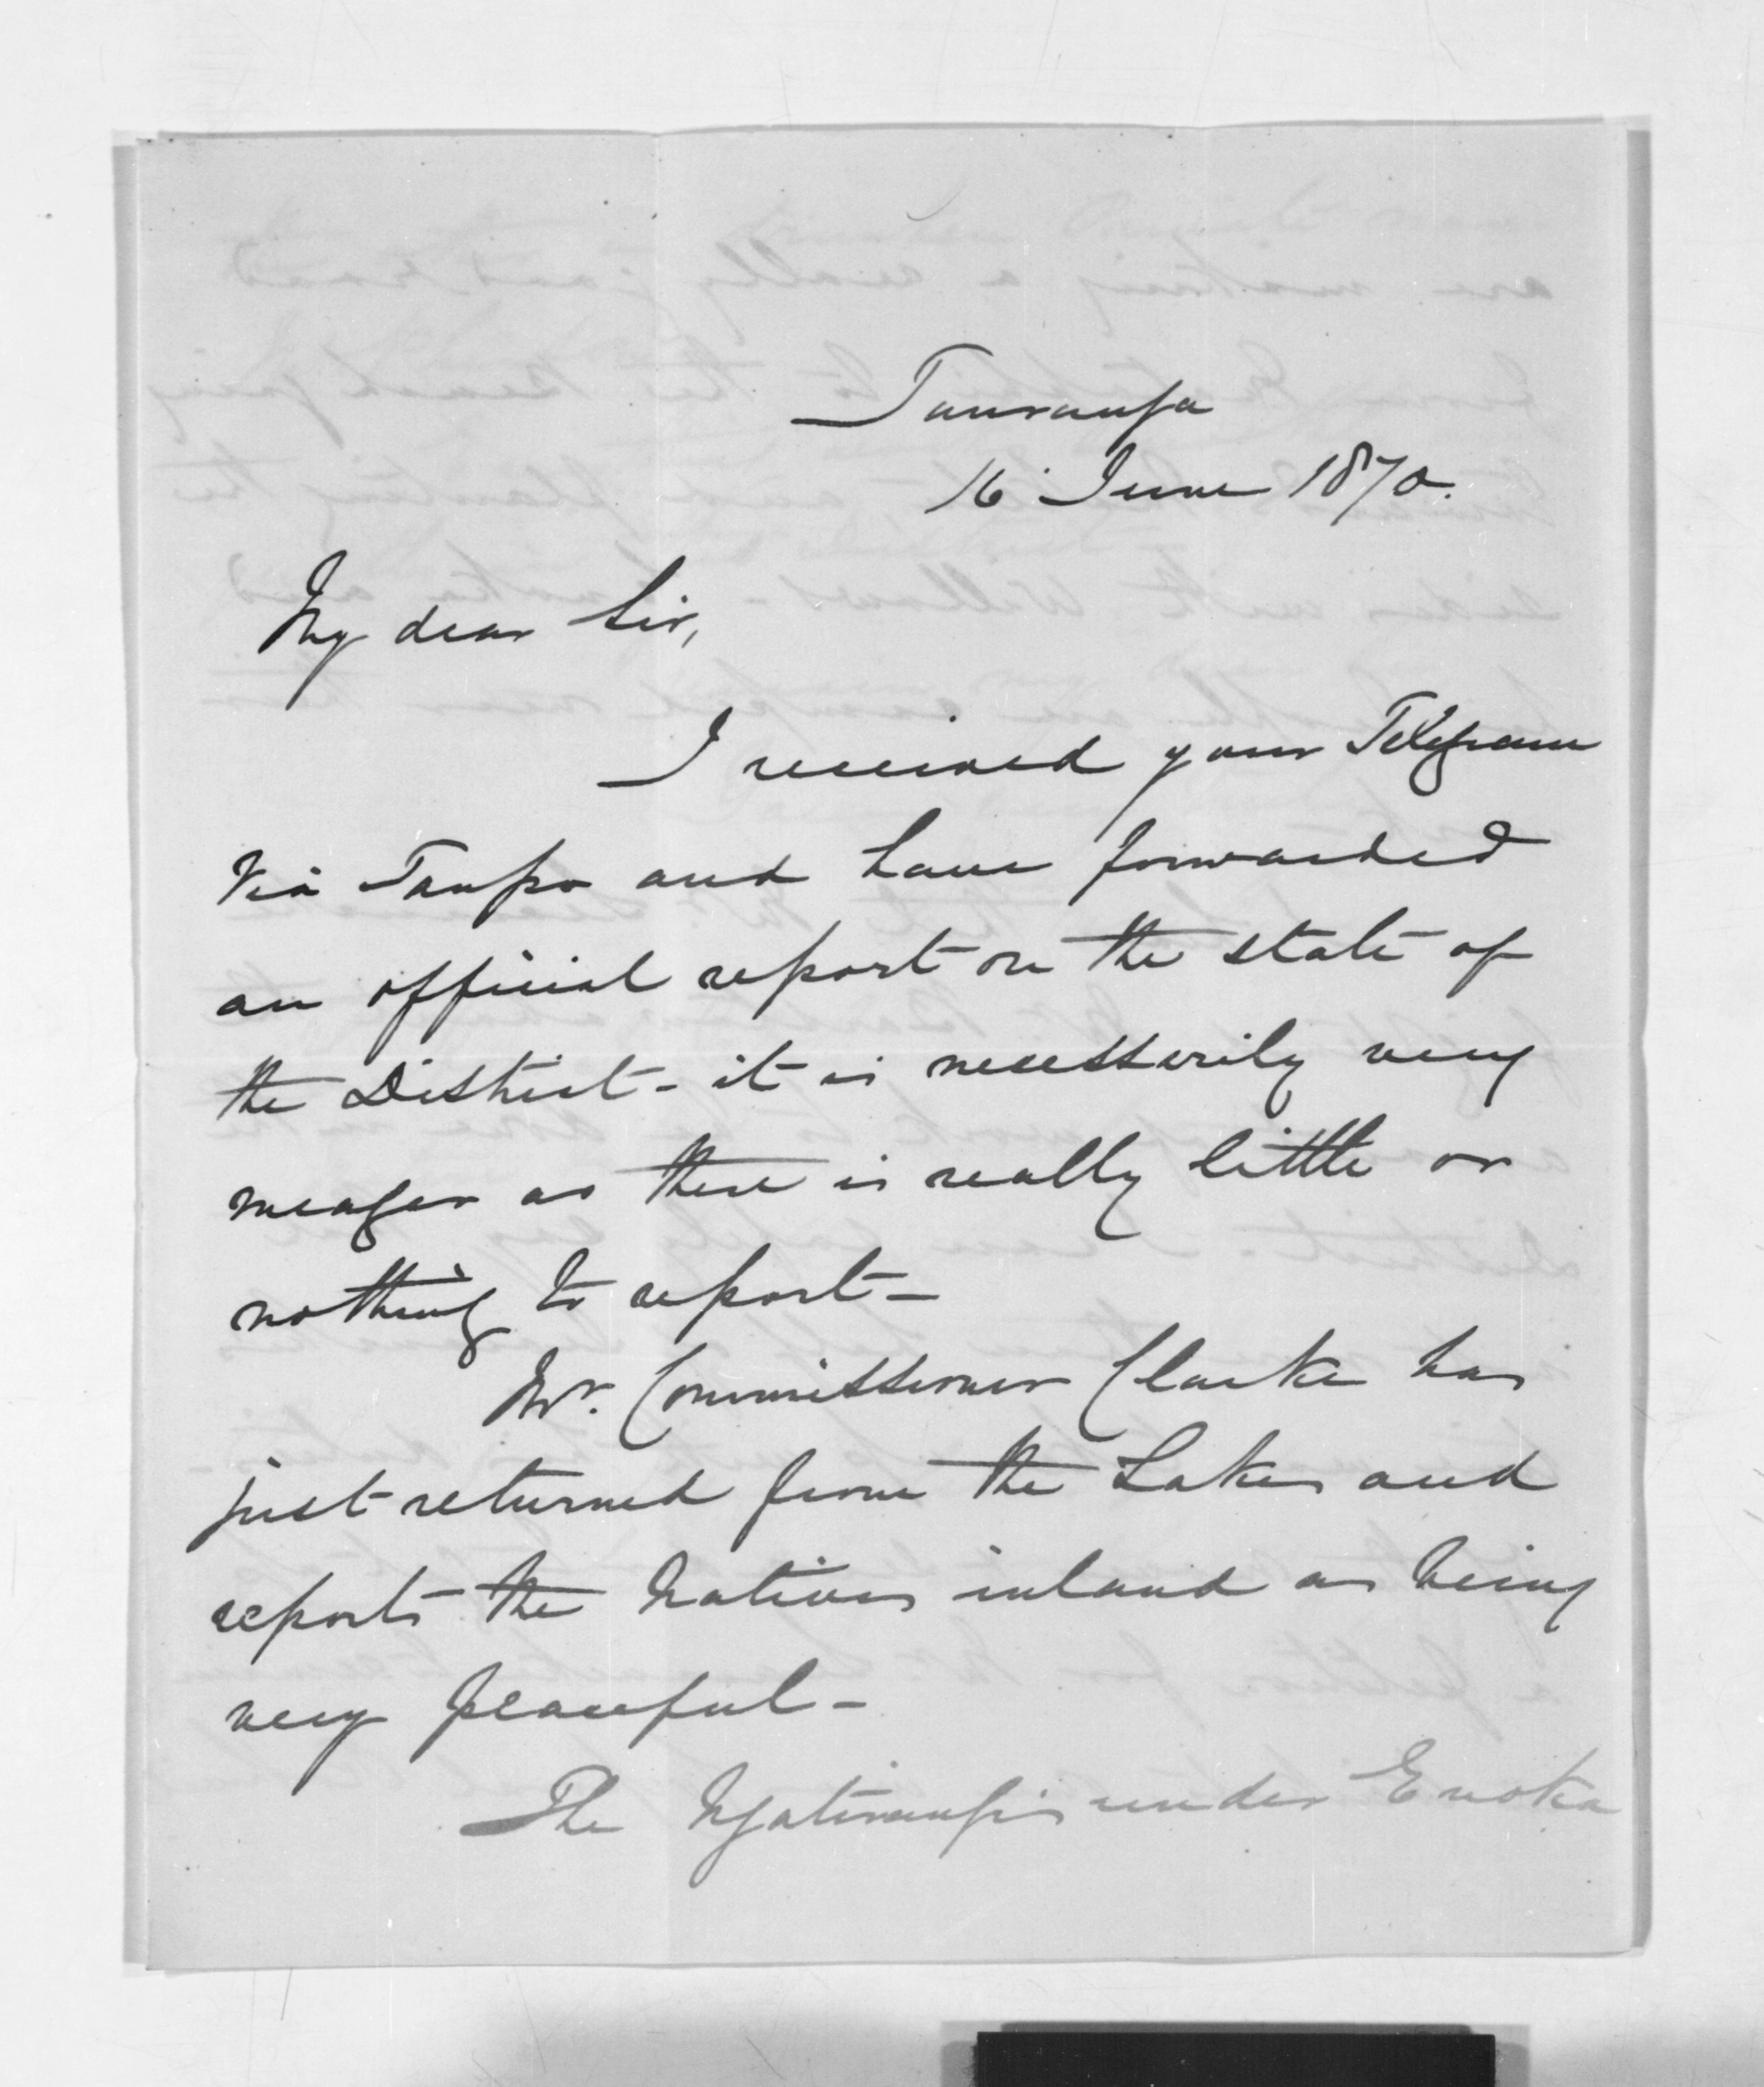 Tauranga
16 June 1870.
My dear Sir,
I received your Telegram
via Taupo and have forwarded
an official report on the state of
the District - it is necessarily very
meager as there is really little or
nothing to report -
Mr. Commissioner Clarke has
just returned from the Lakes and
reports the Natives inland as being
very peaceful -
The Ngatirangis under Enoka